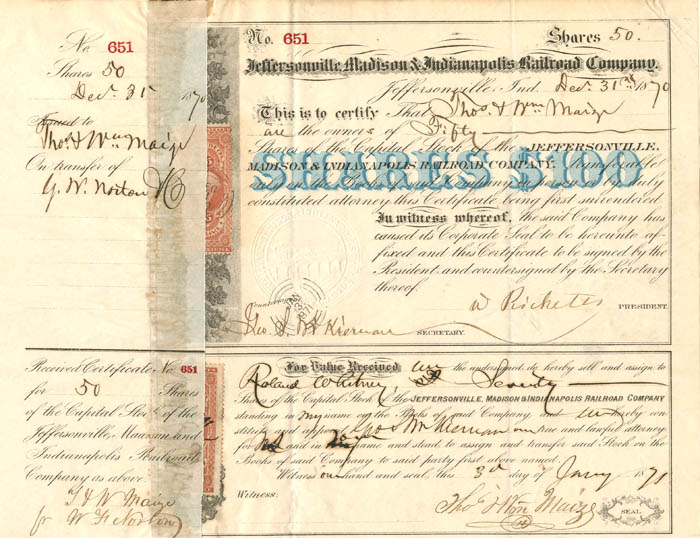 No. 651
Shares 50
Decr. 31 1870
Issued to
Thos. & Wm Maize
On transfer of
G. W. Norton & Co
No. 651 Shares 50.
Jeffersonville, Madison & Indianapolis Railroad Company.
Jeffersonville, Ind. Decr. 31st 1870
This is to certify That Thos & Wm Maize
are the owners of Fifty
Shares of the Capital Stock of the JEFFERSONVILLE,
MADISON & INDIANAPOLIS RAILROAD COMPANY, transferable
SHARES $100
on the Books of said Company in person or by duly
constituted attorney this Certificate being first surrendered.
In witness whereof, the said Company has
caused its Corporate Seal to be hereunto af-
fixed and this Certificate to be signed by the
President, and countersigned by the Secretary
thereof.
W Ricketts PRESIDENT.
Countersigned
Geo. S. McKiernan
SECRETARY.
Received Certificate No 651
for 50 Shares
of the Capital Stock of the
Jeffersonville, Madison and
Indianapolis Railroad
Company as above.
T & W Maize
pr W F Norton
For Value Received We the undersigned, do hereby sell and assign to
Roland Whitney,
Shares of the Capital Stock of the JEFFERSONVILLE, MADISON & INDIANAPOLIS RAILROAD COMPANY
standing in my name on the Books of said Company, and do hereby con-
stitute and appoint Geo S McKiernan our true and lawful attorney
for name and stead, to assign and transfer said Stock on the
Books of said Company to said party first above named.
Witness our hand and seal, this 3d day of Jany 1871
Witness:
Thos & Wm Maize
SEAL